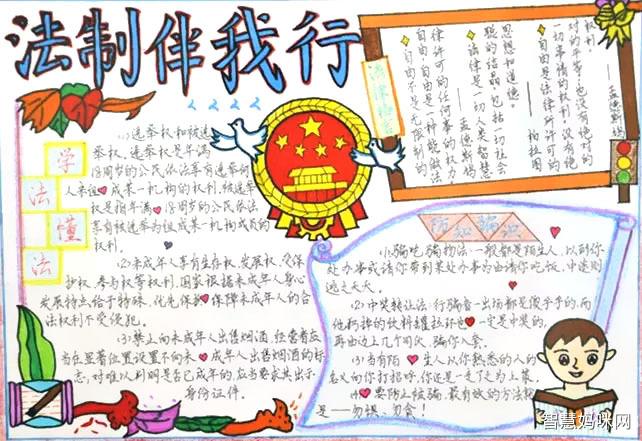 法制伴我行
学法懂法
(1)选举权和被选
举权。选举权是年满
18周岁的公民依法享有选举的
人来组成某一机构的权利。被选举
权是指年满18周岁的公民依法
享有被选举为组成某一机构成员的
权利。
(2)未成年人享有生存权、发展权、受保
护权、参与权等权利,国家根据未成年人身心
发展特点给予特殊、优先保护保障未成年人的合
法权利不受侵犯。
(3)禁止向未成年人出售烟酒,经营者应
当在显著位置设置不向未成年人出售烟酒的标
志;对难以判明是否已成年的,应当要求其出示
身份证件。
法律格言
权利。——孟德斯鸠
对的平等,也没有绝对的
一切事情的权利。没有绝
自由是法律所许可的
——柏拉图
思想和道德。
聪的结晶,包括一切社会
法律是一切人类智慧
——孟德斯鸠
律许可的任何事的权力。
自由,自由是一种能做法
自由不是无限制的
防骗知识
(1)骗吃、骗物法:一般都是陌生人,以到你
处办事或请你帮到某处办事为由请你吃饭,中途则
逃之夭夭。
(2)中奖转让法:行骗者一出场都是傻乎乎的,而
他所持的饮料罐拉环也一定是中奖的,
再由边上几个同伙,骗你入套。
(3)当有陌生人以你熟悉的人的
名义向你打招呼,你还是一走了之为上策。
(4)要防止被骗,最有效的方法就
是——勿惧、勿贪!
智慧妈咪网